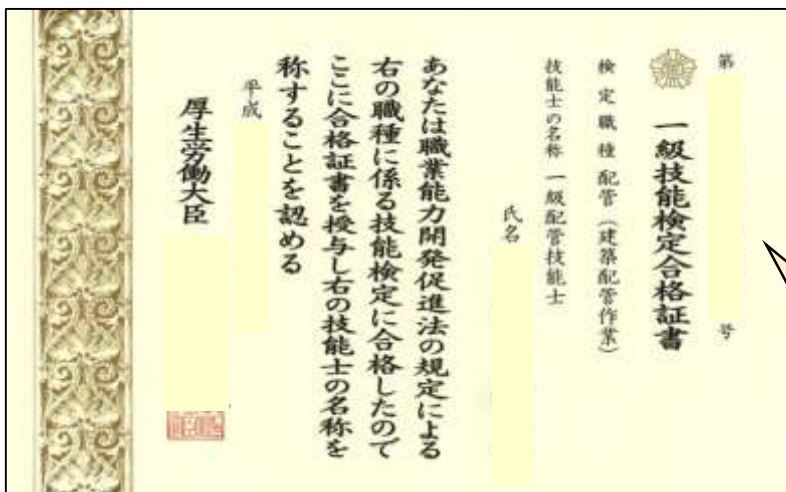 第 号
一級技能検定合格証書
検定職種 配管(建築配管作業)
技能士の名称 一級配管技能士
氏名
あなたは職業能力開発促進法の規定による
右の職種に係る技能検定に合格したので
ここに合格証書を授与し右の技能士の名称を
称することを認める
平成
厚生労働大臣